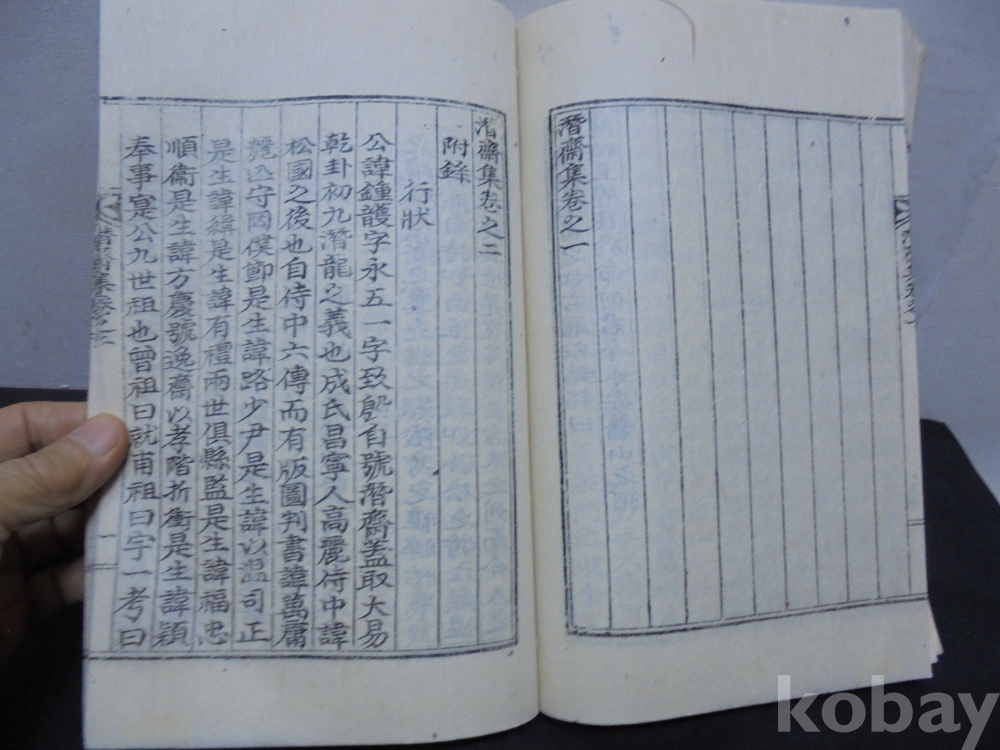 潛齋集卷之一
潛齋集卷之二
附錄
行狀
公諱鍾頀字永五一字致殷自號潛齋盖取大易
乾卦初九潛龍之義也成氏昌寧人高麗侍中諱
松國之後也自侍中六傳而有版圖判書諱萬庸
麗亡守罔僕節是生諱路少尹是生諱以温司正
是生諱緝是生諱有禮兩世俱縣監是生諱福忠
順衛是生諱方慶號逸齋以孝階折衝是生諱頴
奉事寔公九世祖也曾祖曰就甫祖曰字一考曰
潛齋集卷之二
一
kobay